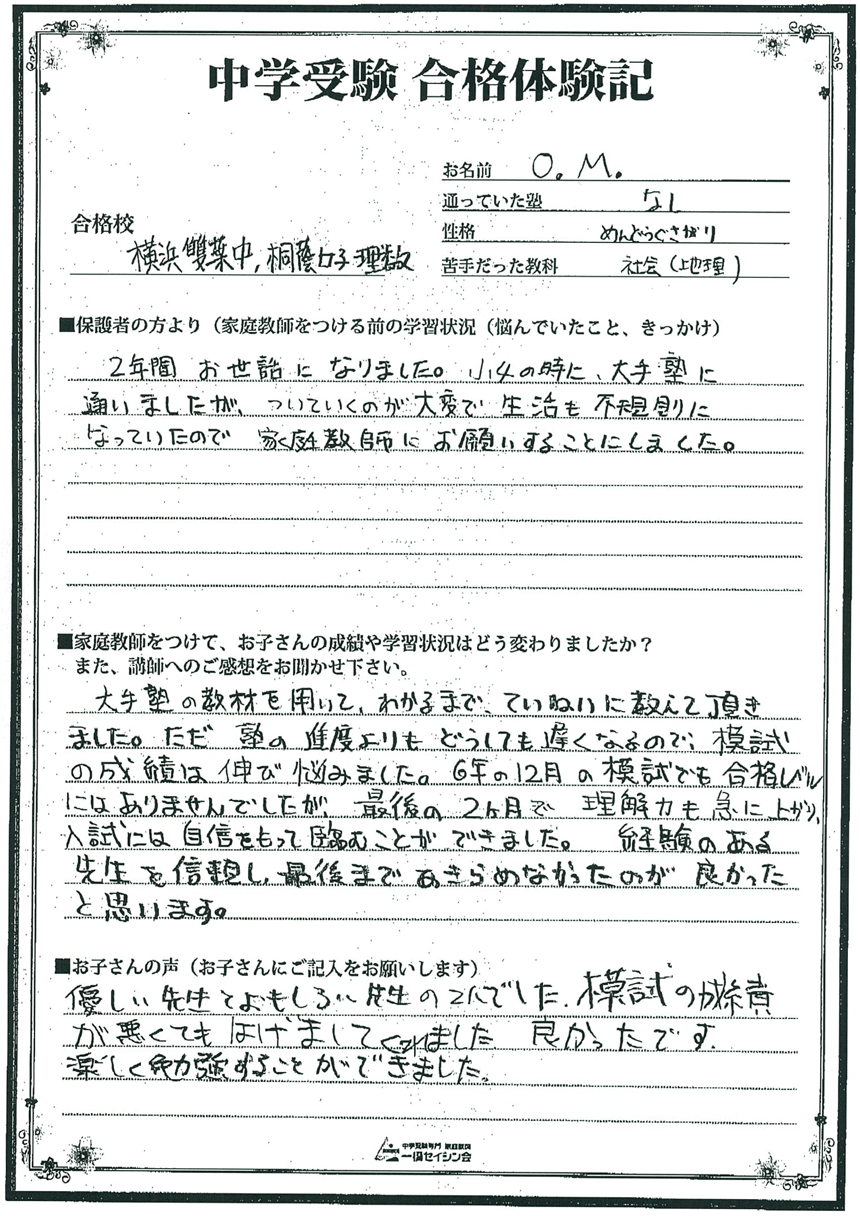 中学受験 合格体験記
お名前 O. M.
通っていた塾 なし
性格 めんどうくさがり
苦手だった教科 社会(地理)
合格校
横浜雙葉中, 桐蔭女子理数
■保護者の方より(家庭教師をつける前の学習状況(悩んでいたこと、きっかけ)
2年間 お世話に なりました。小4の時に、大手塾に
通いましたが、ついていくのが大変で 生活も 不規則に
なっていたので 家庭教師に お願いすることにしました。
■家庭教師をつけて、お子さんの成績や学習状況はどう変わりましたか?
また、講師へのご感想をお聞かせ下さい。
大手塾の教材を用いて、わかるまで、ていねいに教えて頂き
ました。ただ 塾の 進度よりも どうしても遅くなるので、模試
の成績は 伸び悩みました。6年の12月の模試でも合格レベル
にはありませんでしたが、最後の 2ヶ月で 理解力も急に上がり、
入試には 自信をもって臨むことが できました。 経験のある
先生を信頼し、最後まで あきらめなかったのが 良かった
と思います。
■お子さんの声(お子さんにご記入をお願いします)
優しい先生とおもしろい先生の2人でした.模試の成績
が悪くても はげましてくれました 良かったです.
楽しく勉強することができました.
中学受験専門 家庭教師
一橋セイシン会